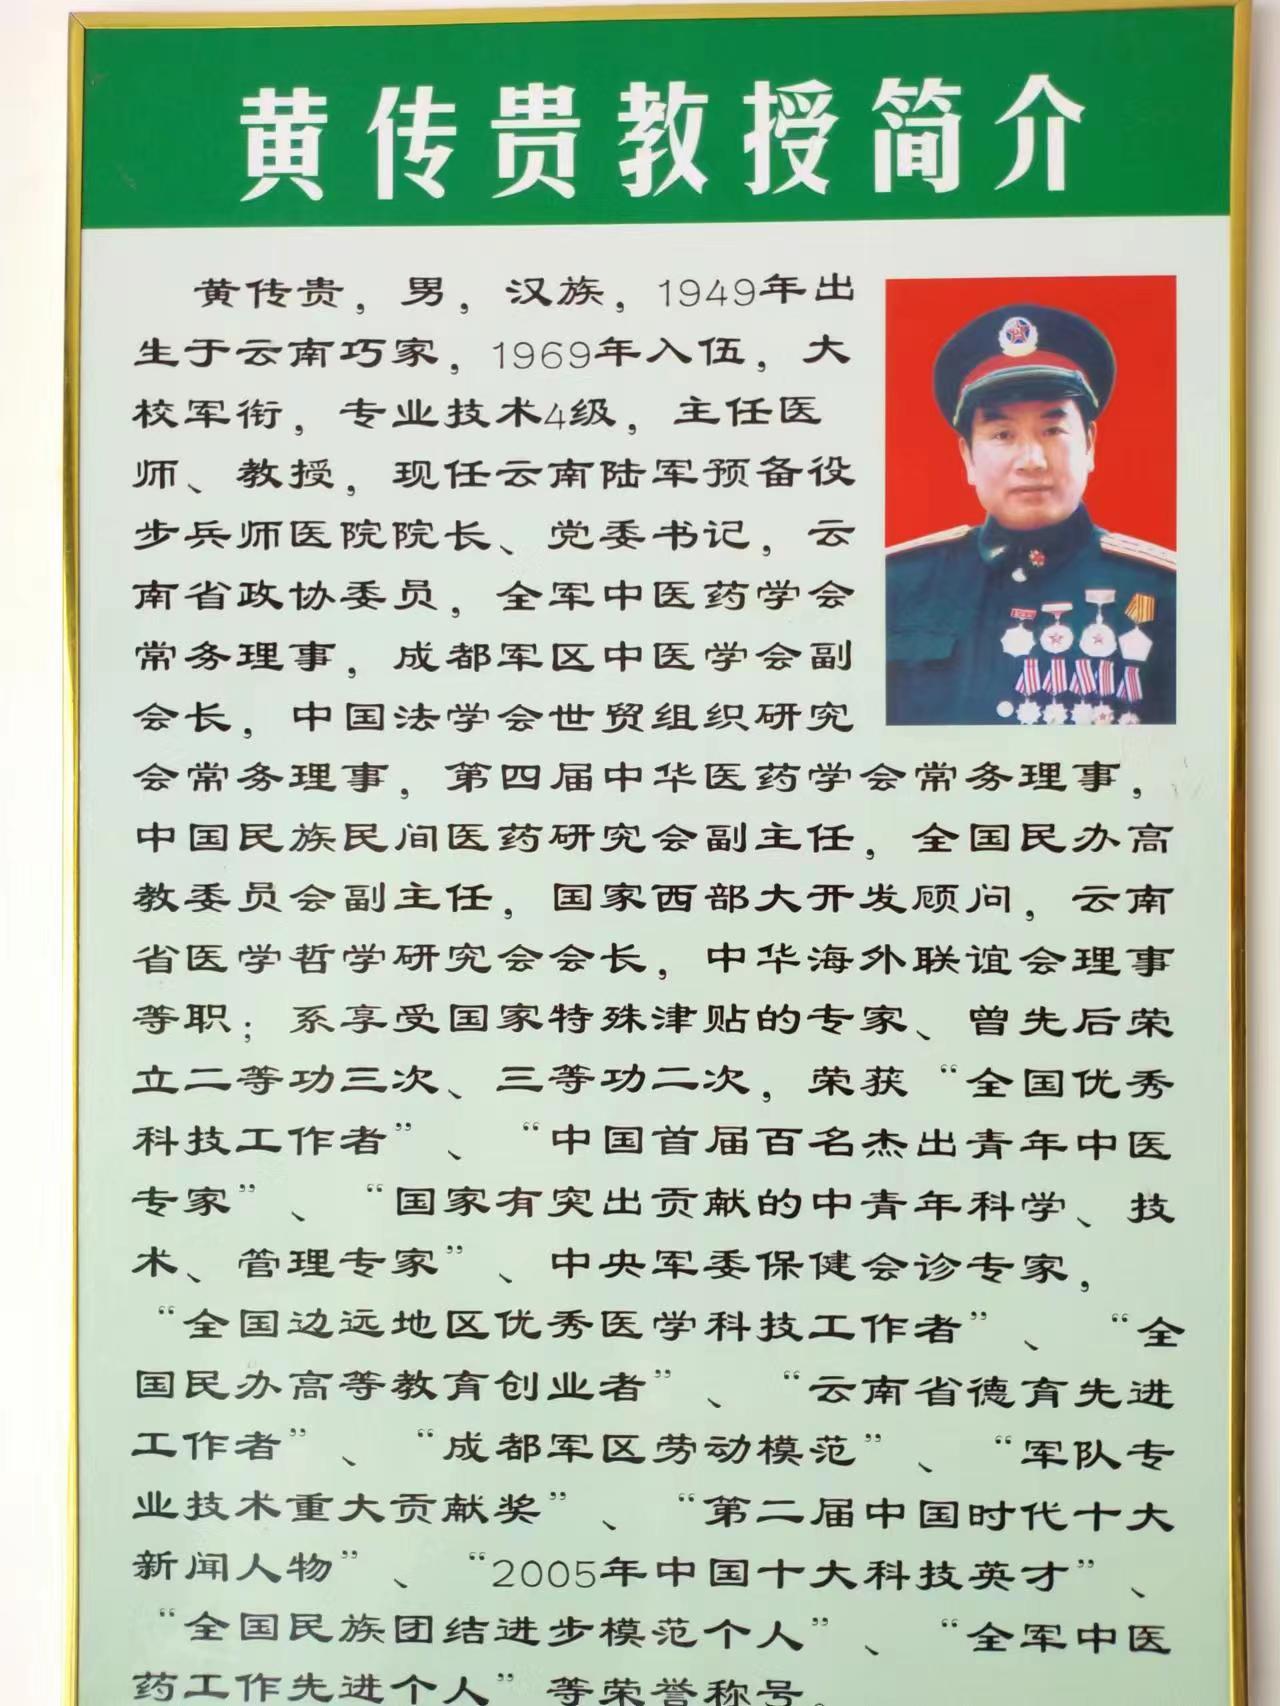 黄传贵教授简介
黄传贵，男，汉族，1949年出
生于云南巧家，1969年入伍，大
校军衔，专业技术4级，主任医
师、教授，现任云南陆军预备役
步兵师医院院长、党委书记，云
南省政协委员，全军中医药学会
常务理事，成都军区中医学会副
会长，中国法学会世贸组织研究
会常务理事，第四届中华医药学会常务理事，
中国民族民间医药研究会副主任，全国民办高
教委员会副主任，国家西部大开发顾问，云南
省医学哲学研究会会长，中华海外联谊会理事
等职；系享受国家特殊津贴的专家、曾先后荣
立二等功三次、三等功二次，荣获“全国优秀
科技工作者”、“中国首届百名杰出青年中医
专家”、“国家有突出贡献的中青年科学、技
术、管理专家”、中央军委保健会诊专家，
“全国边远地区优秀医学科技工作者”、“全
国民办高等教育创业者”、“云南省德育先进
工作者”、“成都军区劳动模范”、“军队专
业技术重大贡献奖”、“第二届中国时代十大
新闻人物”、“2005年中国十大科技英才”、
“全国民族团结进步模范个人”、“全军中医
药工作先进个人”等荣誉称号。